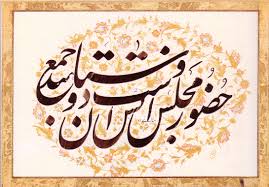 حضور مجلس انس است و دوستان جمعند